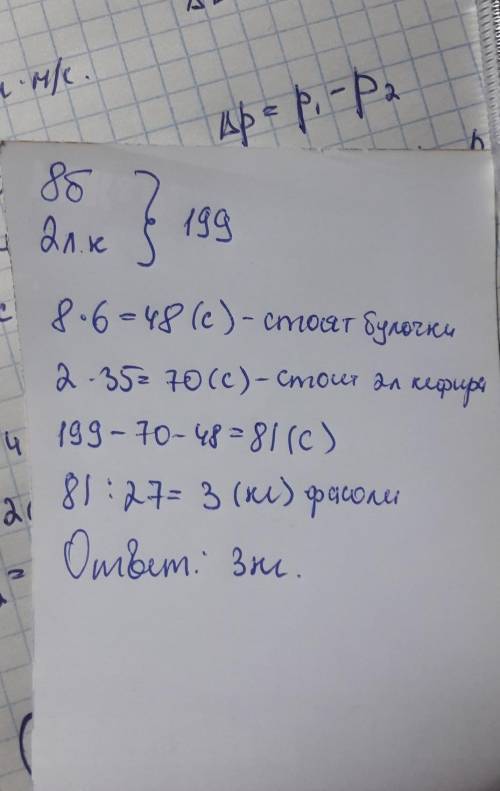 Δp = p₁ - p₂
8б
2л.к } 199
8·6=48 (с) - стоят булочки
2·35= 70(с) - стоит 2л кефира
199-70-48=81(с)
81:27= 3 (кг) фасоли
Ответ: 3кг.